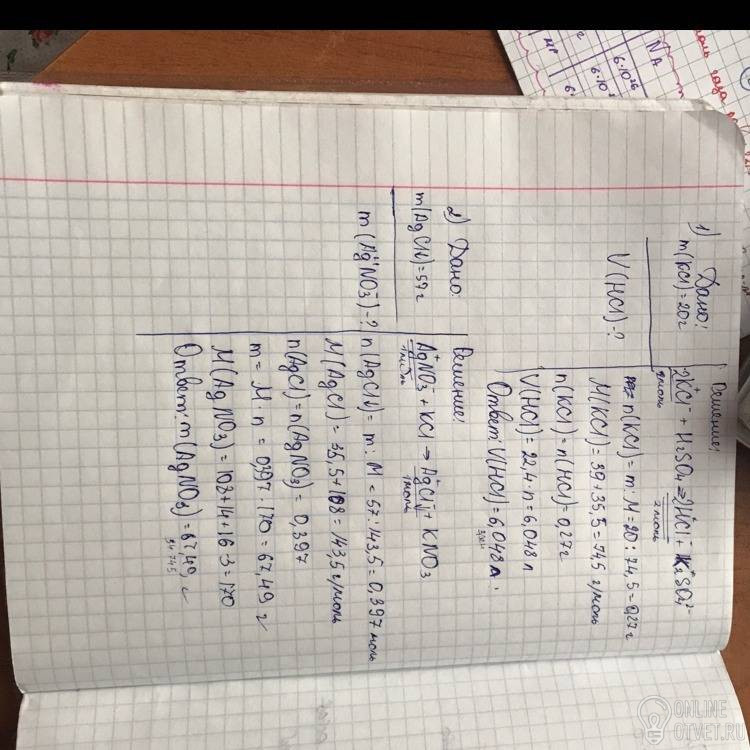 1) Дано:
m(KCl)=20г
V(HCl)-?
Решение:
2KCl + H₂SO₄ ⇒ 2HCl + K₂SO₄
2моль
2моль
n(KCl)=m:M=20:74,5=0,27г
M(KCl)=39+35,5=74,5 г/моль
n(KCl)=n(HCl)=0,27г
V(HCl)=22,4·n=6,048л
Ответ: V(HCl)=6,048л.
2) Дано:
m(AgCl↓)=57г
m(AgNO₃)-?
Решение:
AgNO₃ + KCl ⇒ AgCl↓ + KNO₃
1моль
1моль
n(AgCl↓)=m:M=57:143,5=0,397моль
M(AgCl)=35,5+108=143,5г/моль
n(AgCl)=n(AgNO₃)=0,397
m=M·n=0,397·170=67,49г
M(AgNO₃)=108+14+16·3=170
Ответ: m(AgNO₃)=67,49г
NA
6·10²⁶
МР
газа
ONLINE
OTVET.RU